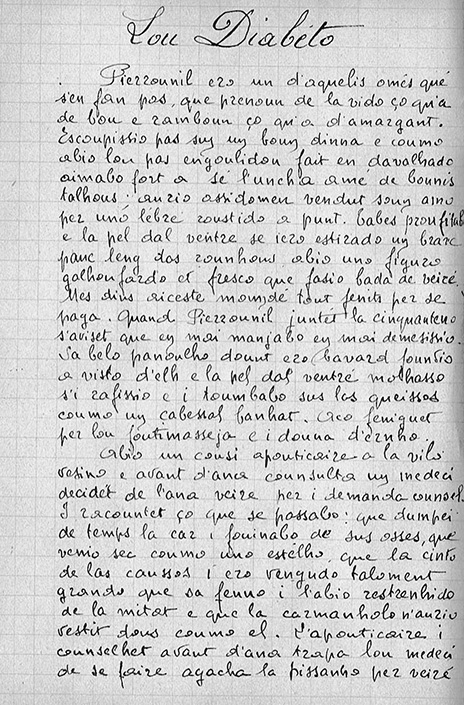 Lou Diabèto
Pierrounil ero un d'aquelis omés qué
s'en fan pas, que prenoun de la vido ço qu'a
de bou e ramboun ço qu'a d'amargant.
Escoupissio pas sus un boun dinna e coumo
abio lou pas engoulidou fait en davalhado
aimabo fort a se l'unchia amé de bounis
talhous : auzio assidomen vendut soun amo
per uno lébré roustido a punt.
e la pel dal ventre se iero estirado un brabe
panc leng das rounhous abio uno figuro
galhoufardo et fresco que fasio bada de veiré.
Mes dins aiceste moundé tout fenits per se
paga. Quand Pierrounil juntet la cinquanteno
s'aviset que en mai manjabo en mai demesissio.
Sa belo panoulho dount ero bavard fountio
a visto d'elh e la pel dal ventré molhasso
s'i rafissio e i toumbabo sus las queissos
coumo un cabessal banhat. Aco feniguet
per lou foutimasseja e i douna d'ernho.
Abio un cousi apouticaire a la vilo
vesino e avant d'ana counsulta un medeci
decidèt de l'ana veire per i demanda counsel
I racountet ço que se passabo : que dumpei
de temps la car i fouinabo de sus osses, que
venio sec coumo uno estèlho, que la cinto
de las caussos i ero vengudo taloment
grando que sa fenno i l'abio restrenhido
de la mitat e que la carmanholo n'auzio
vestit dous coumo el. L'apouticaire i
counselhet avant d'ana trapa lou medeci
de se faire agacha la pissanho per veiré